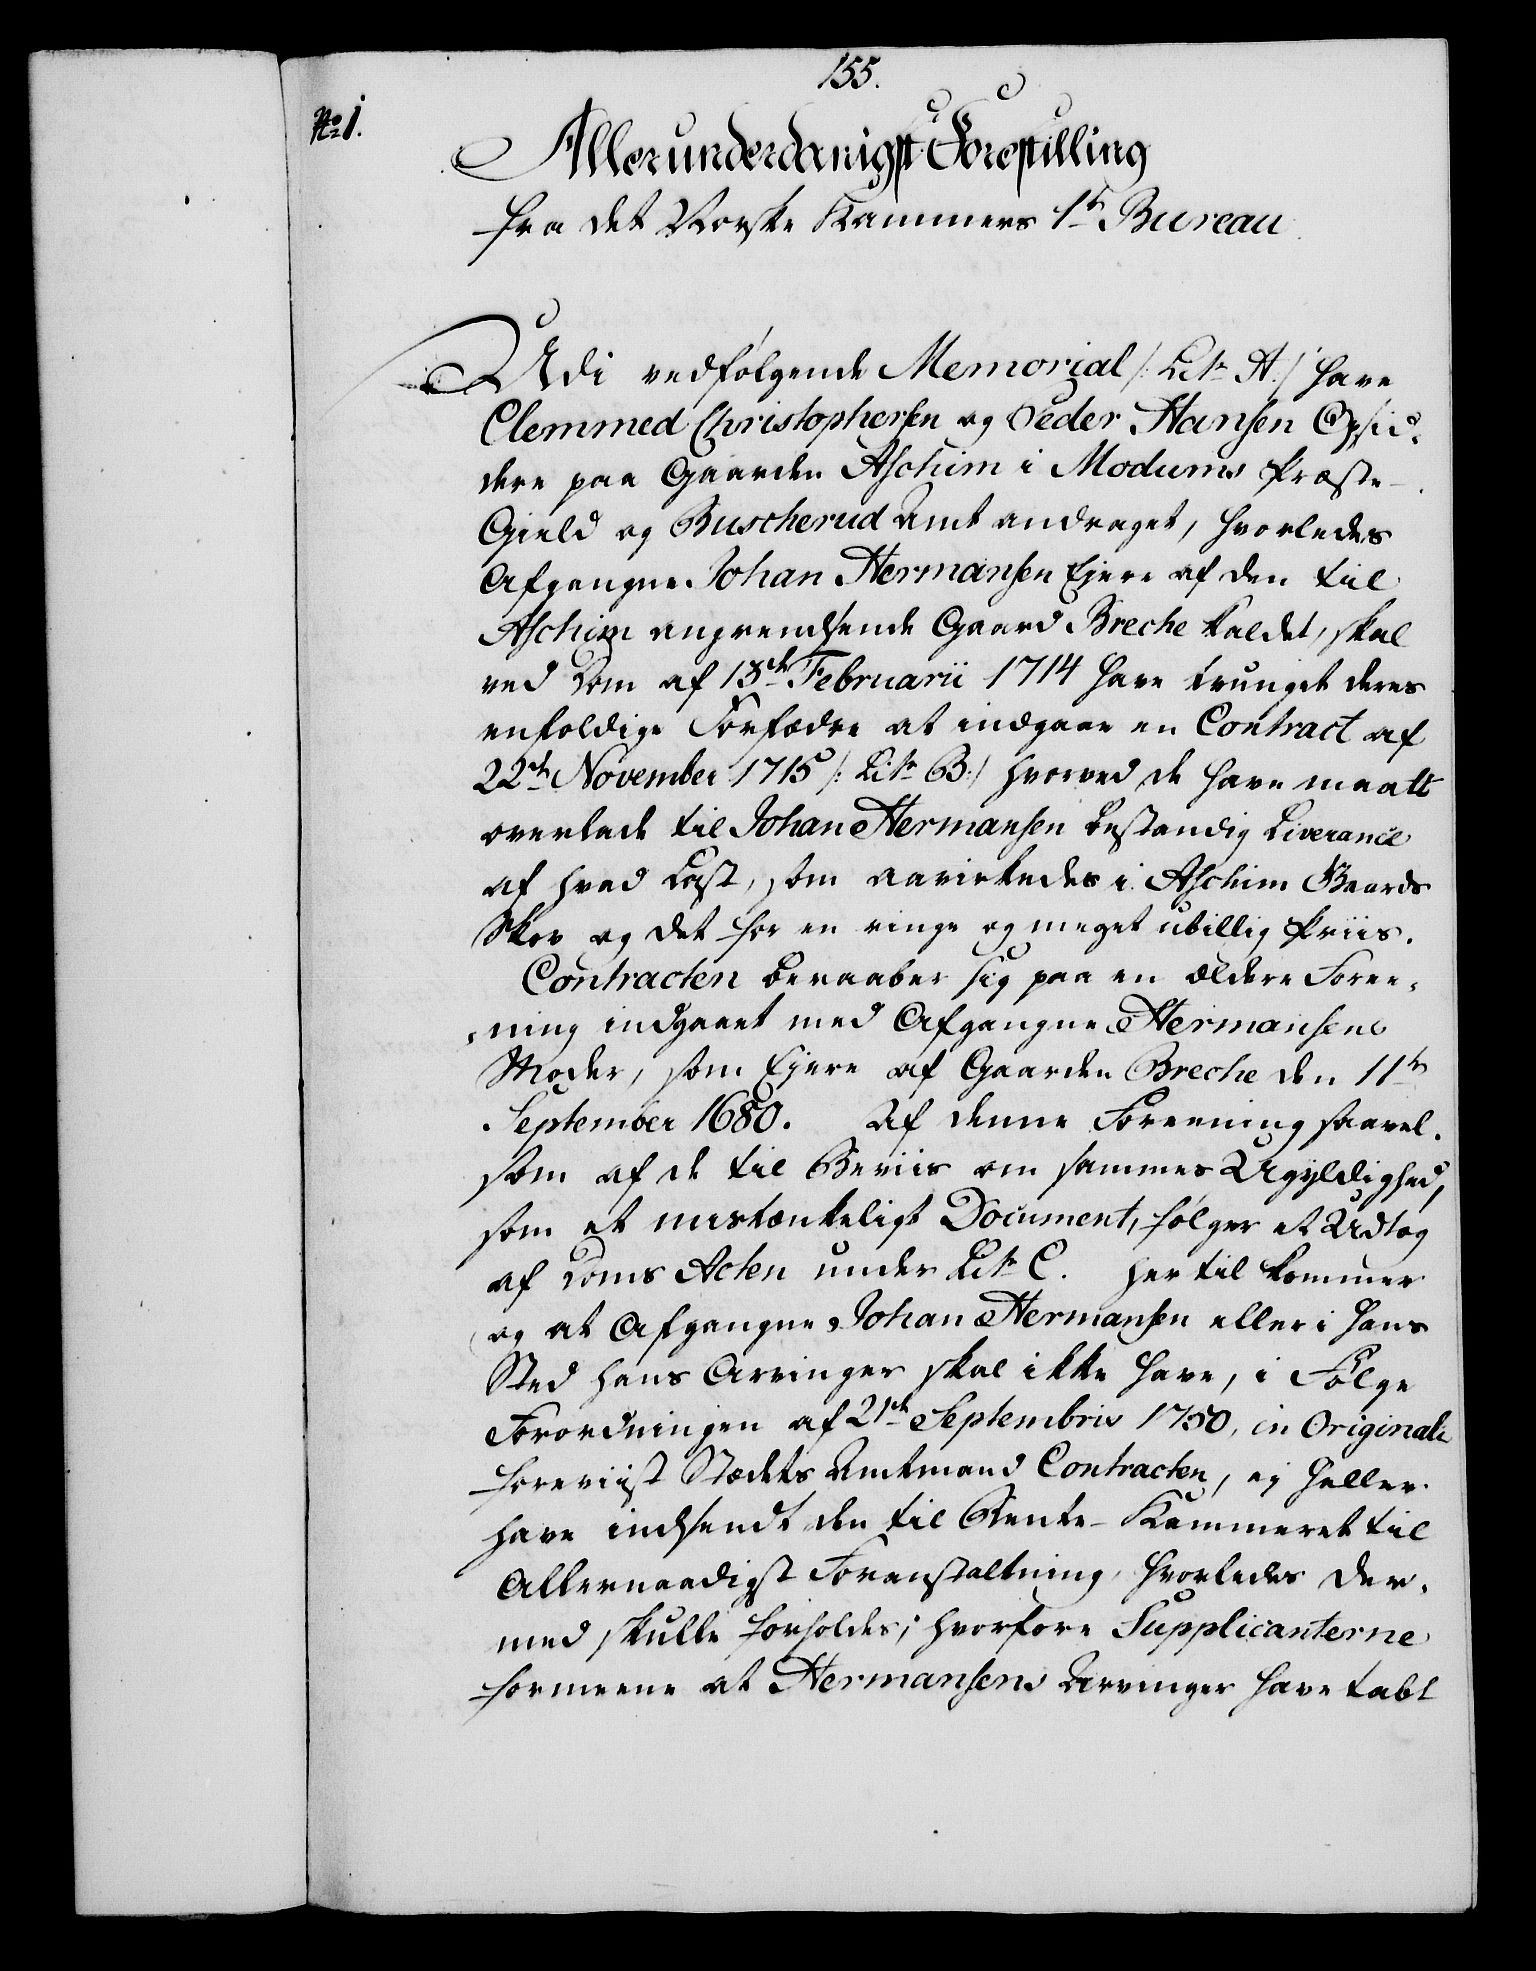 155.
No 1.
Allerunderdanigst Forestilling
fra det Norske Kammers 1te Bureau
Udi vedfølgende Memorial /: Litr A :/ have
Clemmed Christophersen og Peder Hansen Opsid-
dere paa Gaarden Aschim i Modums Præste-
Gield og Buscherud Amt andraget, hvorledes
Afgangne Johan Hermansen Ejere af den til
Aschim angrendsende Gaard Breche kaldet, skal
ved Dom af 13de Februarii 1714 have tvunget deres
enfoldige Forfædre at indgaae en Contract af
22de November 1715 /: Litr B :/ hvorved de have maatt
overlade til Johan Hermansen bestandig Liverance
af hvad Last, som aavirkedes i Aschim Gaards
Skov og det for en ringe og meget ubillig Priis.
Contracten beraaber sig paa en ældere Foree-
ning indgaaet med Afgangne Hermansens
Moder, som Ejere af Gaarden Breche den 11te
September 1680. Af denne Foreening saavel-
som af de til Beviis om sammes Ugyldighed,
som et mistænkeligt Document, følger et Udtog
af Doms Acten under Litr C. Hertil kommer
og at Afgangne Johan Hermansen eller i hans
Sted hans Arvinger skal ikke have, i Følge
Forordningen af 21de Septembris 1750, in Originali
foreviist Stedets Amtmand Contracten, ej heller
have indsendt den til Rente-Kammeret til
Allernaadigst Foranstaltning, hvorledes der-
med skulle forholdes; hvorfore Supplicanterne
formeene at Hermansens Arvinger have tabt